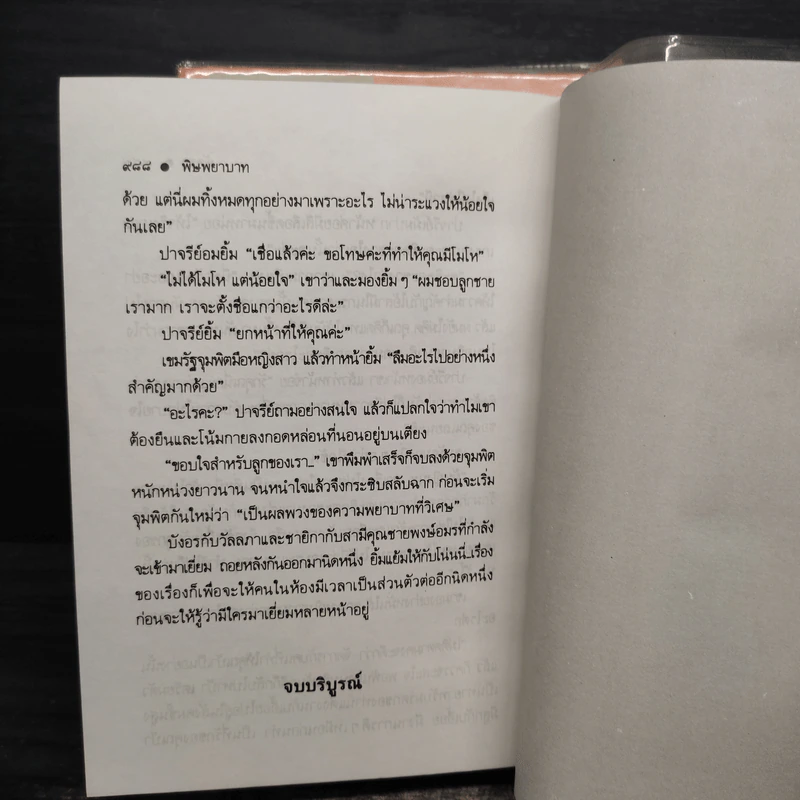 ๙๘๘ ● พิษพยาบาท
ด้วย แต่นี่ผมทิ้งหมดทุกอย่างมาเพราะอะไร ไม่น่าระแวงให้น้อยใจ
กันเลย”
ปาจรีย์อมยิ้ม “เชื่อแล้วค่ะ ขอโทษค่ะที่ทำให้คุณมีโมโห”
“ไม่ได้โมโห แต่น้อยใจ” เขาว่าและมองยิ้ม ๆ “ผมชอบลูกชาย
เรามาก เราจะตั้งชื่อแกว่าอะไรดีล่ะ”
ปาจรีย์ยิ้ม “ยกหน้าที่ให้คุณค่ะ”
เขมรัฐจุมพิตมือหญิงสาว แล้วทำหน้ายิ้ม “ลืมอะไรไปอย่างหนึ่ง
สำคัญมากด้วย”
“อะไรคะ?” ปาจรีย์ถามอย่างสนใจ แล้วก็แปลกใจว่าทำไมเขา
ต้องยืนและโน้มกายลงกอดหล่อนที่นอนอยู่บนเตียง
“ขอบใจสำหรับลูกของเรา...” เขาพึมพำเสร็จก็จบลงด้วยจุมพิต
หนักหน่วงยาวนาน จนหนำใจแล้วจึงกระซิบสลับฉาก ก่อนจะเริ่ม
จุมพิตกันใหม่ว่า “เป็นผลพวงของความพยาบาทที่วิเศษ”
บังอรกับวัลลภาและชายิกากับสามีคุณชายพงษ์อมรที่กำลัง
จะเข้ามาเยี่ยม ถอยหลังกันออกมานิดหนึ่ง ยิ้มแย้มให้กับโน่นนี่...เรื่อง
ของเรื่องก็เพื่อจะให้คนในห้องมีเวลาเป็นส่วนตัวต่ออีกนิดหนึ่ง
ก่อนจะให้รู้ว่ามีใครมาเยี่ยมหลายหน้าอยู่
จบบริบูรณ์